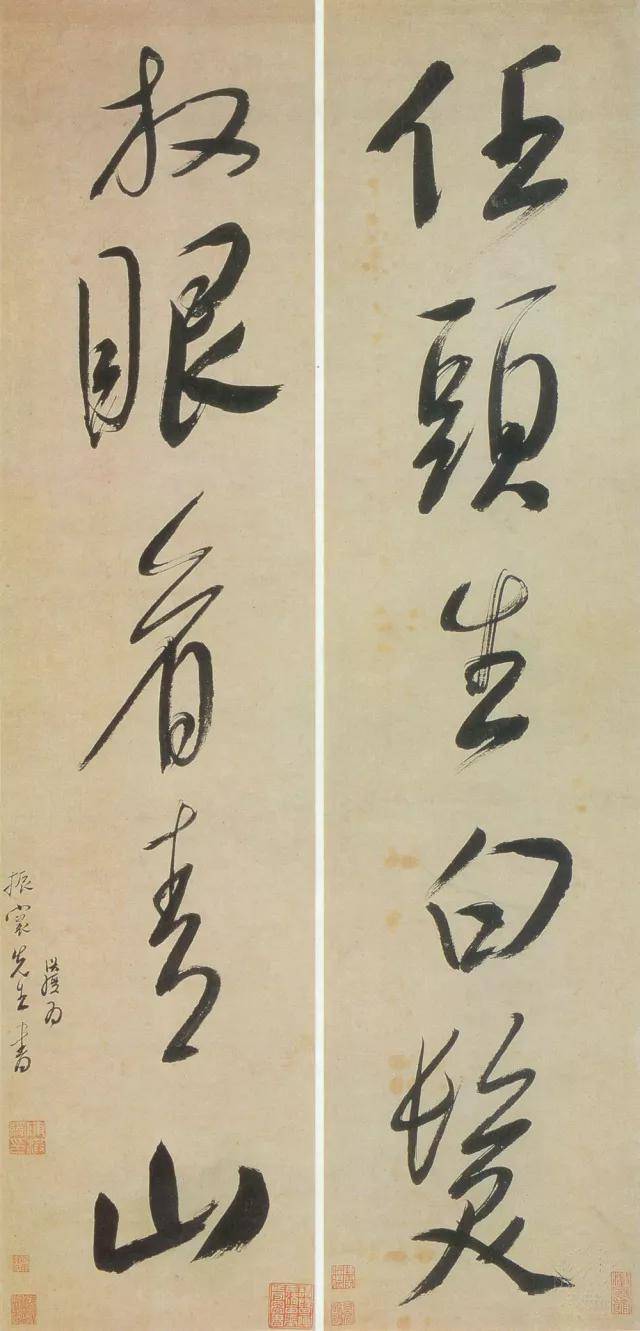 任頭生白髮
放眼看青山
振裳先生書